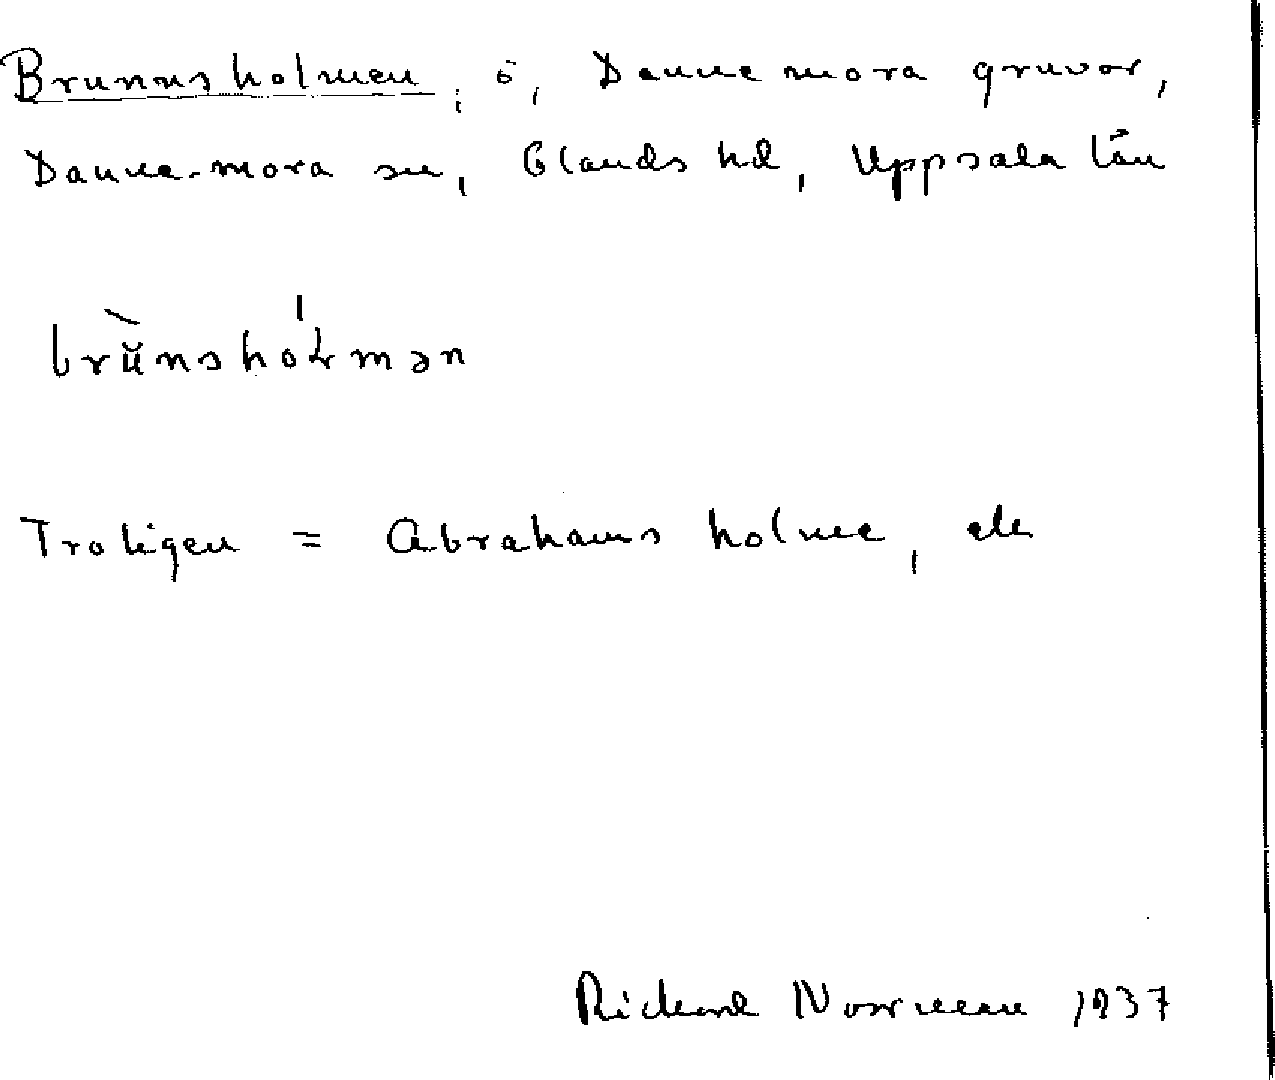 Brunnsholmen, ö, Dannemora gruvor,
Dannemora sn, Olands hd, Uppsala län
brŭnshółmən
Troligen = Abrahams holme,
Richard Norrman 1937